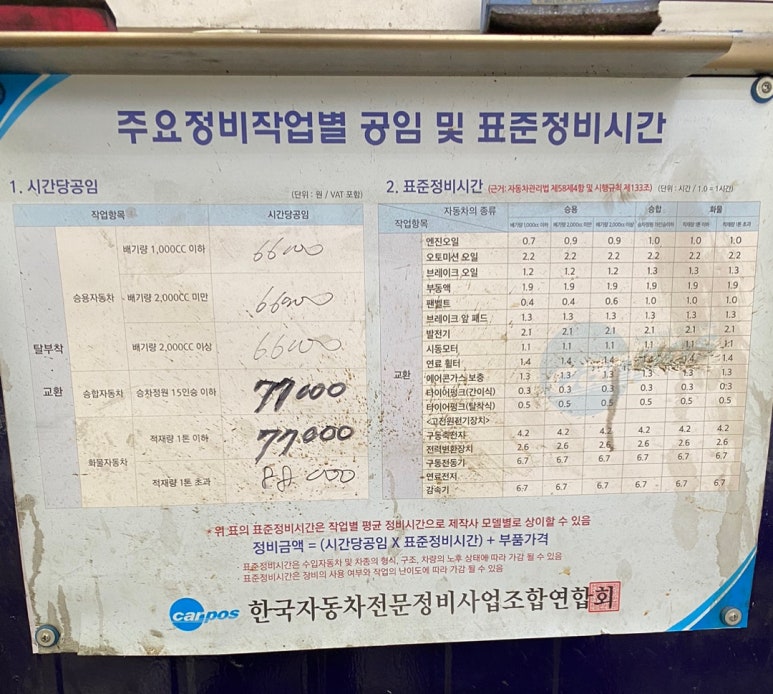 주요정비작업별 공임 및 표준정비시간
1. 시간당공임
(단위 : 원 / VAT 포함)
작업항목 시간당공임
탈부착 교환
승용자동차
배기량 1,000CC 이하 66000
배기량 2,000CC 미만 66000
배기량 2,000CC 이상 66000
승합자동차 승차정원 15인승 이하 77000
화물자동차
적재량 1톤 이하 77.000
적재량 1톤 초과 88000
2. 표준정비시간 (근거: 자동차관리법 제58제4항 및 시행규칙 제133조) (단위 : 시간 / 1.0 = 1시간)
자동차의 종류 승용 승합 화물
작업항목 배기량 1,000cc 이하 배기량 2,000cc 미만 배기량 2,000cc 이상 승차정원 15인승이하 적재량 1톤 이하 적재량 1톤 초과
교환
엔진오일 0.7 0.9 0.9 1.0 1.0 1.0
오토미션 오일 2.2 2.2 2.2 2.2 2.2 2.2
브레이크 오일 1.2 1.2 1.2 1.3 1.3 1.3
부동액 1.9 1.9 1.9 1.9 1.9 1.9
팬벨트 0.4 0.4 0.6 1.0 1.0 1.0
브레이크 앞 패드 1.3 1.3 1.3 1.3 1.3 1.3
발전기 2.1 2.1 2.1 2.1 2.1 2.1
시동모터 1.1 1.1 1.1 1.1 1.1 1.1
연료 휠터 1.4 1.4 1.4 1.4 1.4
에어콘가스 보충 1.3 1.3 1.3 1.3 1.3 1.3
타이어펑크(간이식) 0.3 0.3 0.3 0.3 0.3 0.3
타이어펑크(탈착식) 0.5 0.5 0.5 0.5 0.5 0.5
<고전원전기장치>
구동축전지 4.2 4.2 4.2 4.2 4.2 4.2
전력변환장치 2.6 2.6 2.6 2.6 2.6 2.6
구동전동기 6.7 6.7 6.7 6.7 6.7 6.7
연료전지 - - - - - -
감속기 6.7 6.7 6.7 6.7 6.7 6.7
· 위 표의 표준정비시간은 작업별 평균 정비시간으로 제작사 모델별로 상이할 수 있음
정비금액 = (시간당공임 X 표준정비시간) + 부품가격
· 표준정비시간은 수입자동차 및 차종의 형식, 구조, 차량의 노후 상태에 따라 가감 될 수 있음
· 표준정비시간은 장비의 사용 여부와 작업의 난이도에 따라 가감 될 수 있음
carpos 한국자동차전문정비사업조합연합회